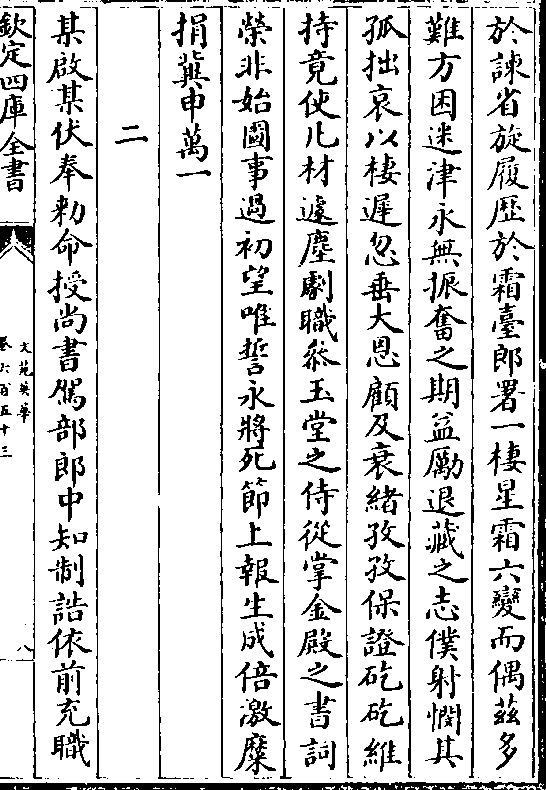 於諫省旋履歴於霜臺郎署一棲星霜六變而偶茲多
難方困迷津永無振奮之期益厲退藏之志僕射憫其
孤拙哀以棲遲忽垂大恩顧及衰緒孜孜保證矻矻維
持竟使凡材遽塵劇職忝玉堂之侍從掌金殿之書詞
榮非始圖事過初望唯誓永將死節上報生成倍激糜
捐冀申萬一
二
某啟某伏奉勑命授尚書駕部郎中知制誥依前充職
欽定四庫全書
文苑英華
卷六百五十三
八